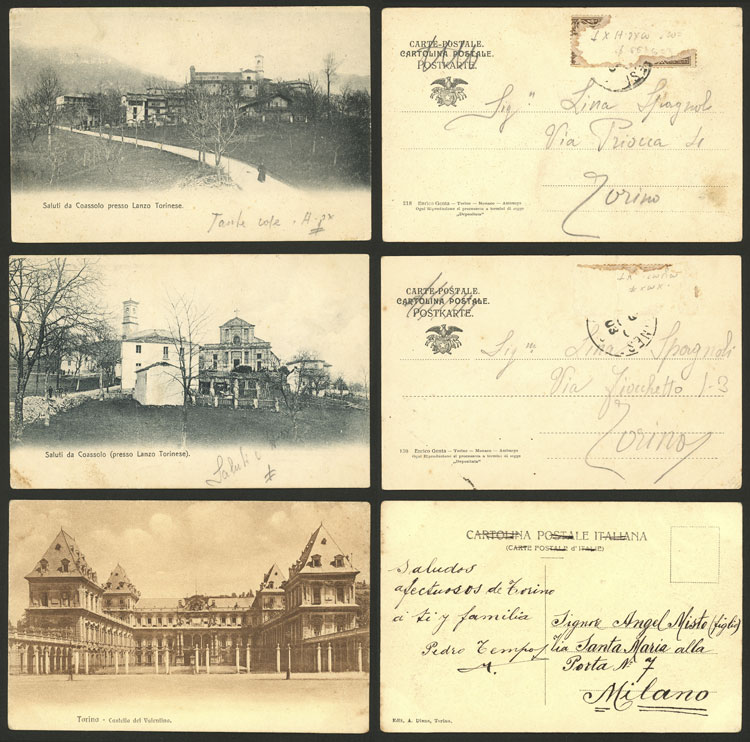 Saluti da Coassolo presso Lanzo Torinese.
Tante cose.
CARTE-POSTALE.
CARTOLINA POSTALE.
POSTKARTE.
Sig.na Lina Spagnoli
Via Priocca
Torino
218 Enrico Genta — Torino — Monaco —
Ogni Riproduzione si processerà a termini di legge
„Depositata“
Saluti da Coassolo (presso Lanzo Torinese).
Saluti
CARTE-POSTALE.
CARTOLINA POSTALE.
POSTKARTE.
Sig.na Lina Spagnoli
Via Fiochetto 1-3
Torino
Enrico Genta — Torino — Monaco —
Ogni Riproduzione si processerà a termini di legge
„Depositata“
Torino - Castello del Valentino.
CARTOLINA POSTALE ITALIANA
(CARTE POSTALE d'ITALIE)
Saludos
afectuosos de Torino
a ti y familia
Pedro Tempo
Signore Angel Misto (figlio)
Via Santa Maria alla
Porta Nº 7
Milano
Edit. A. Torino.